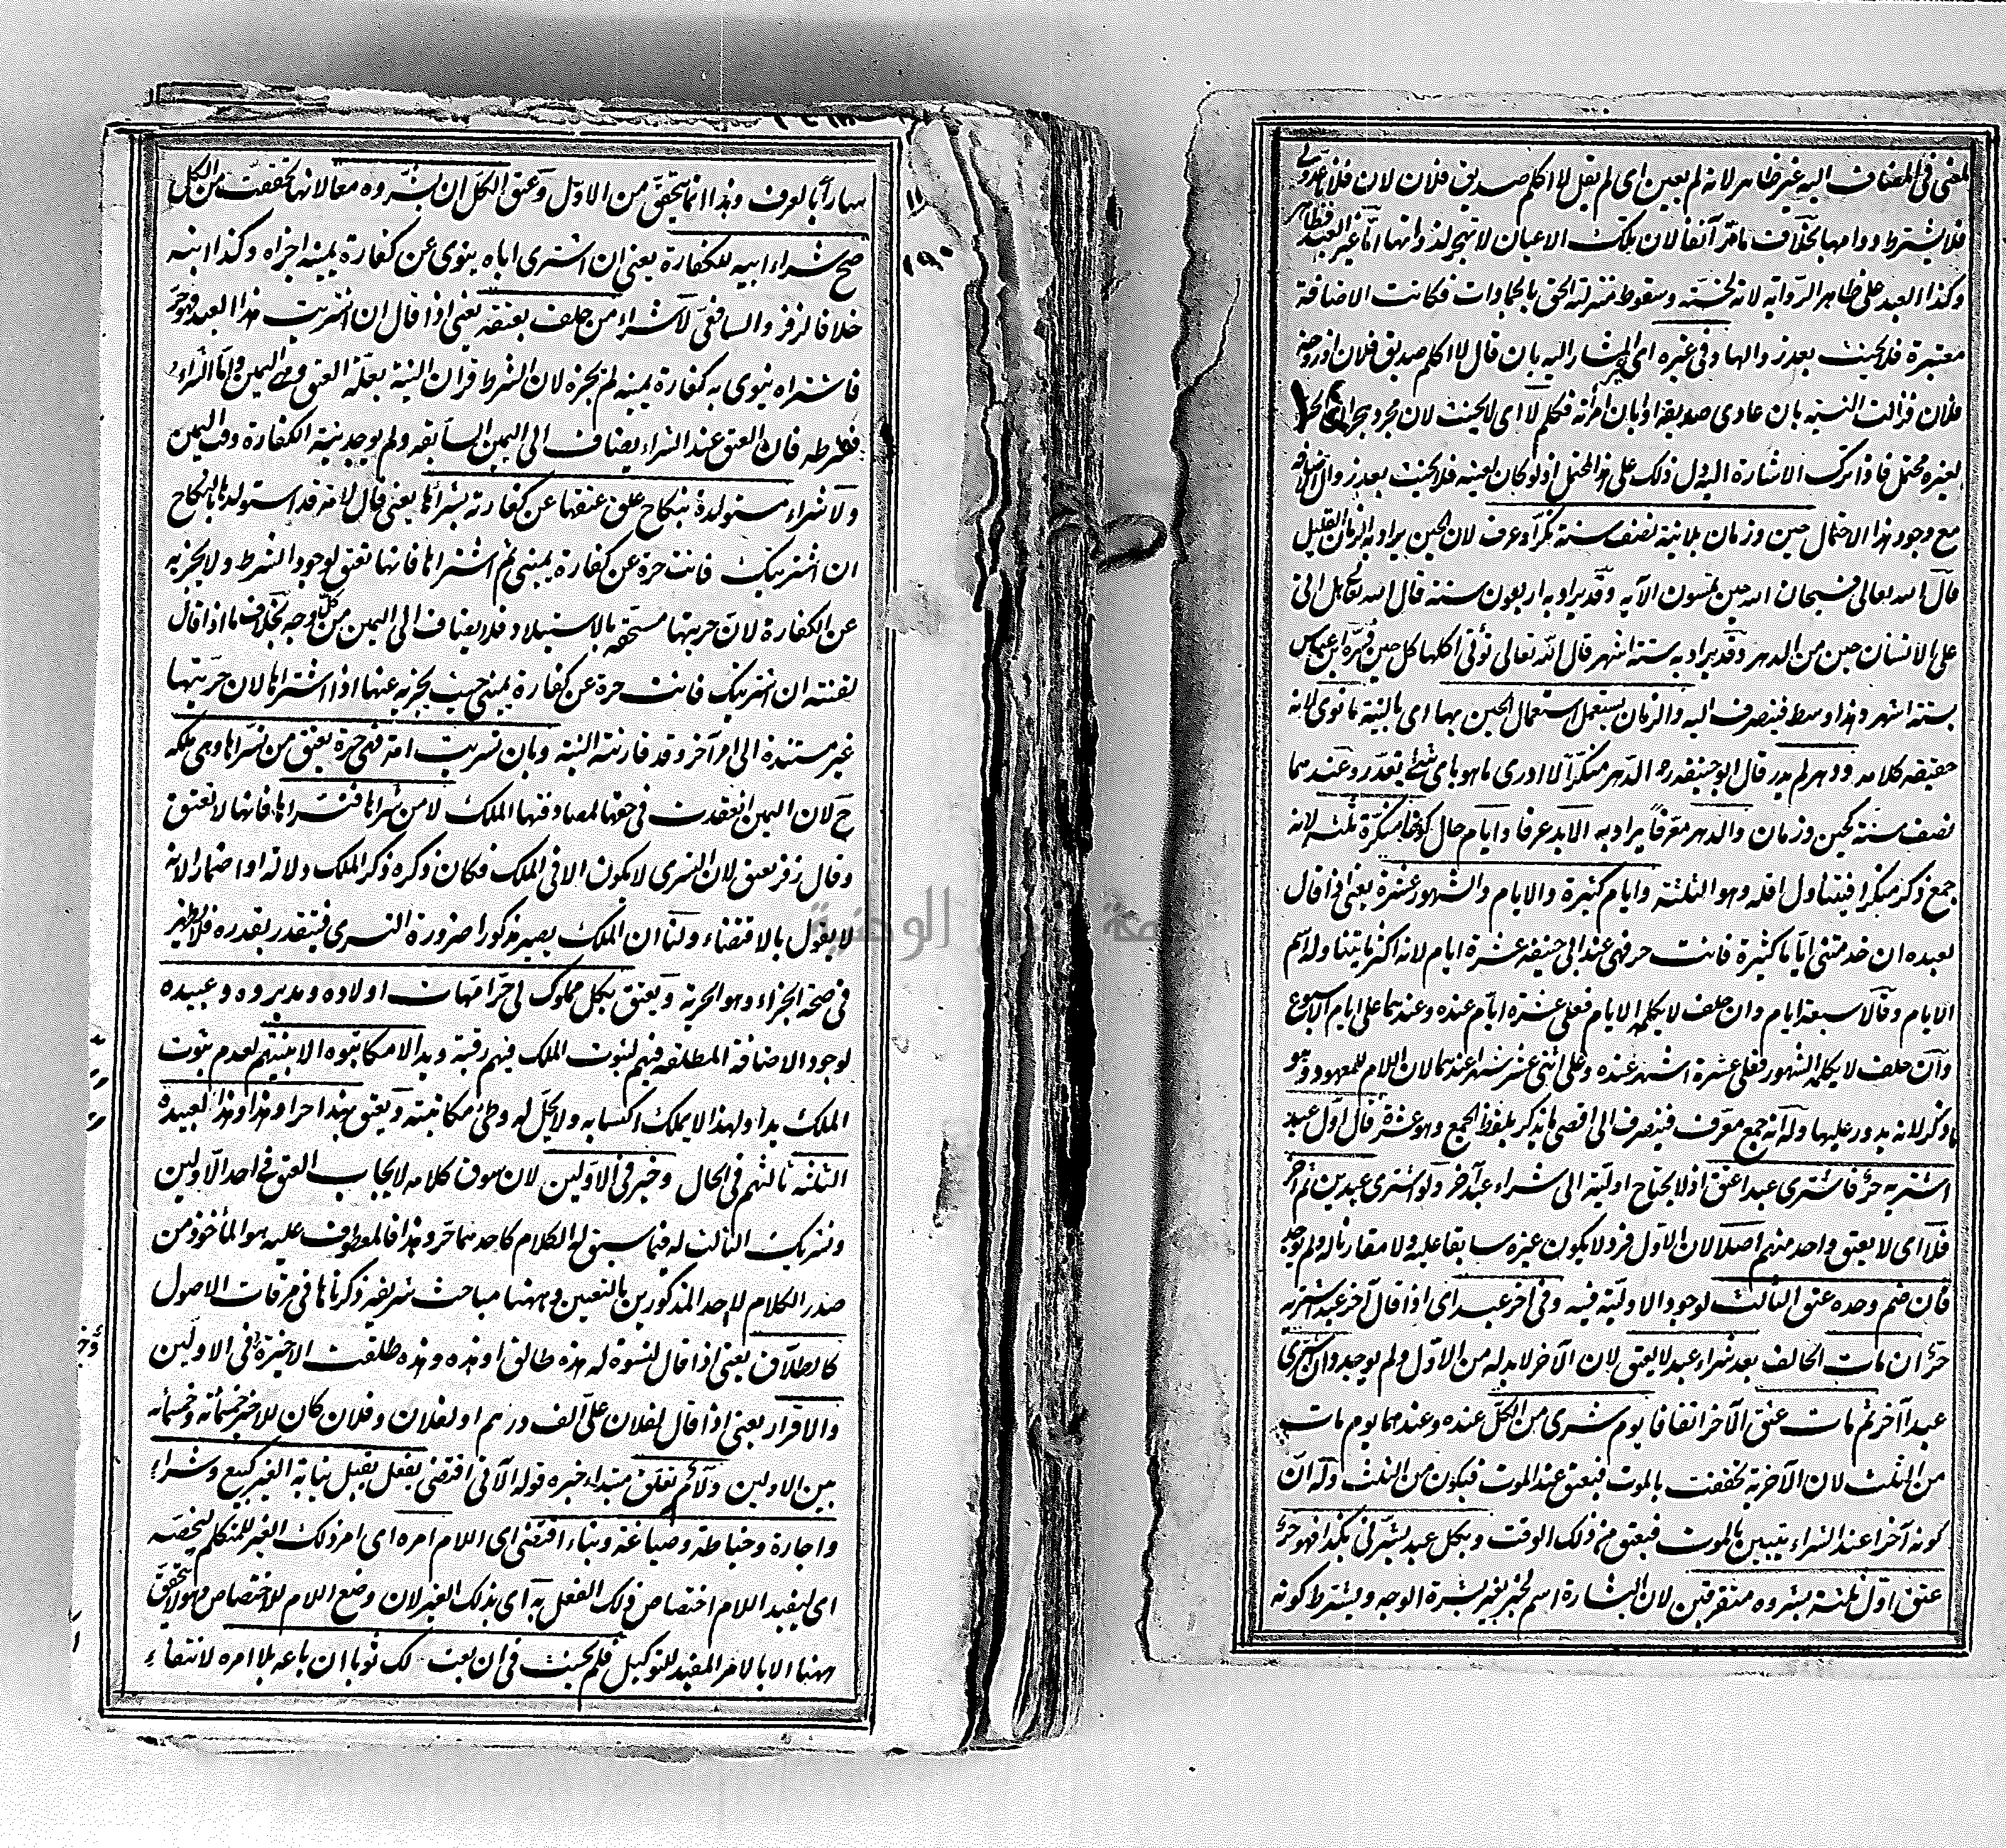 المعنى في المضاف اليه غير ظاهر لانه لم يعين اى لم يقل لا اكلم صديق فلان لان فلانا عدو لى
فلا يشترط دوامها بخلاف ما مر آنفا لان تلك الاعيان لا تهجر لذواتها اما غير العبد فظاهر
وكذا العبد على ظاهر الرواية لانه لخسته وسقوط منزلته الحق بالجمادات فكانت الاضافة
معتبرة فلا يحنث بعد زوالها وفى غيره اى المشار اليه بان قال لا اكلم صديق فلان او زوجة
فلان فزالت النسبة بان عادى صديقه او ابان امرأته فكلم لا اى لا يحنث لان مجرد هجران الحر
لغيره محتمل فاذا ترك الاشارة اليه دل ذلك على هذا المحتمل فلا يحنث بعد زوال الاضافة
مع وجود هذا الاحتمال حين وزمان بلا نية نصف سنة نكر او عرف لان الحين يراد به الزمان القليل
قال الله تعالى فسبحان الله حين تمسون الآية وقد يراد به اربعون سنة قال الله تعالى هل اتى
على الانسان حين من الدهر وقد يراد به ستة اشهر قال الله تعالى تؤتى اكلها كل حين فسره ابن عباس
بستة اشهر وهذا وسط فينصرف اليه والزمان يستعمل استعمال الحين وبها اى بالنية ما نوى لانه
حقيقة كلامه ودهر لم يدر قال ابو حنيفة رح الدهر منكرا لا ادرى ما هو باى شئ يقدر وعندهما
نصف سنة كحين وزمان والدهر معرفا يراد به الابد عرفا وايام حال كونها منكرة ثلثة لانه
جمع ذكر منكرا فيتناول اقله وهو الثلثة وايام كثيرة والايام والشهور عشرة يعنى اذا قال
لعبده ان خدمتنى اياما كثيرة فانت حر فهى عند ابى حنيفة عشرة ايام لانه اكثر ما يتناوله اسم
الايام وقالا سبعة ايام وان حلف لا يكلمه الايام فعلى عشرة ايام عنده وعندهما على ايام الاسبوع
وان حلف لا يكلمه الشهور فعلى عشرة اشهر عنده وعلى اثنى عشر شهرا عندهما لان اللام للمعهود وهو
ما ذكر لانه يدور عليها وله انه جمع معرف فينصرف الى اقصى ما يذكر بلفظ الجمع وهو عشرة قال اول عبد
اشتريه حر فاشترى عبدا عتق اذ لا يحتاج اوليته الى شراء عبد آخر ولو اشترى عبدين ثم آخر
فلا اى لا يعتق واحد منهم اصلا لان الاول فرد لا يكون غيره سابقا عليه ولا مقارنا له ولم يوجد
فان ضم وحده عتق الثالث لوجود الاولية فيه وفى آخر عبد اى اذا قال آخر عبد اشتريه
حر ان مات الحالف بعد شراء عبد لا يعتق لان الآخر لا بد له من الاول ولم يوجد وان شرى
عبدا آخر ثم مات عتق الآخر اتفاقا يوم شرى من الكل عنده وعندهما يوم مات
من الثلث لان الآخرية تحققت بالموت فيعتق عند الموت فيكون من الثلث وله ان
كونه آخرا عند الشراء يتبين بالموت فيعتق من ذلك الوقت وبكل عبد بشرنى بكذا فهو حر
عتق اول ثلثة بشروه متفرقين لان البشارة اسم لخبر يغير بشرة الوجه ويشترط كونه
سارا بالعرف وهذا انما يتحقق من الاول وعتق الكل ان بشروه معا لانها تحققت من الكل
صح شراء ابيه للكفارة يعنى ان اشترى اباه ينوى عن كفارة يمينه اجزاه وكذا ابنه
خلافا لزفر والشافعى لا شراء من حلف بعتقه يعنى اذا قال ان اشتريت هذا العبد فهو حر
فاشتراه ينوى به كفارة يمينه لم يجزه لان الشرط قران النية بعلة العتق وهى اليمين واما الشراء
فشرطه فان العتق عند الشراء يضاف الى اليمين السابقة ولم يوجد نية الكفارة وقت اليمين
ولا شراء مستولدة بنكاح علق عتقها عن كفارته بشرائها يعنى قال لامة قد استولدها بالنكاح
ان اشتريتك فانت حرة عن كفارة يمينى ثم اشتراها فانها تعتق لوجود الشرط ولا يجزيه
عن الكفارة لان حريتها مستحقة بالاستيلاد فلا يضاف الى اليمين من كل وجه بخلاف ما اذا قال
لقنته ان اشتريتك فانت حرة عن كفارة يمينى حيث يجزيه عنها اذا اشتراها لان حريتها
غير مستندة الى امر آخر وقد قارنته النية وبان تسريت امة فهى حرة يعتق من تسراها وهى ملكه
ح لان اليمين انعقدت فى حقها لمصادفتها الملك لا من شراها فتسراها فانها لا تعتق
وقال زفر تعتق لان التسرى لا يكون الا فى الملك فكان ذكره ذكر الملك دلالة او اضمارا لانه
لا يقول بالاقتضاء ولنا ان الملك يصير مذكورا ضرورة التسرى فيتقدر بقدره فلا يظهر
فى صحة الجزاء وهو الحرية ويعتق بكل مملوك لى حر امهات اولاده ومدبروه وعبيده
لوجود الاضافة المطلقة فيهم لثبوت الملك فيهم رقبة ويدا لا مكاتبوه الا بنيتهم لعدم ثبوت
الملك يدا ولهذا لا يملك اكسابه ولا يحل له وطئ مكاتبته ويعتق بهذا حر او هذا وهذا لعبيده
الثلثة ثالثهم فى الحال وخير فى الاولين لان سوق كلامه لايجاب العتق فى احد الاولين
وتشريك الثالث له فيما سبق له الكلام كاحدهما حر وهذا فالمعطوف عليه هو المأخوذ من
صدر الكلام لا احد المذكورين بالتعيين وههنا مباحث شريفة ذكرناها فى مرقات الاصول
كالطلاق يعنى اذا قال لنسوة له هذه طالق او هذه وهذه طلقت الاخيرة وخير فى الاولين
والاقرار يعنى اذا قال لفلان على الف درهم او لفلان وفلان كان للاخير خمسمائة وخمسمائة
بين الاولين ولام تعلق مبتدأ خبره قوله الآتى اقتضى بفعل يقبل نيابة الغير كبيع وشراء
واجارة وخياطة وصياغة وبناء اقتضى اى اللام امره اى امر ذلك الغير للمتكلم ليخصه
اى ليفيد اللام اختصاص ذلك الفعل به اى بذلك الغير لان وضع اللام للاختصاص وهو لا يتحقق
ههنا الا بالامر المفيد للتوكيل فلم يحنث فى ان بعت لك ثوبا ان باعه بلا امره لانتفاء